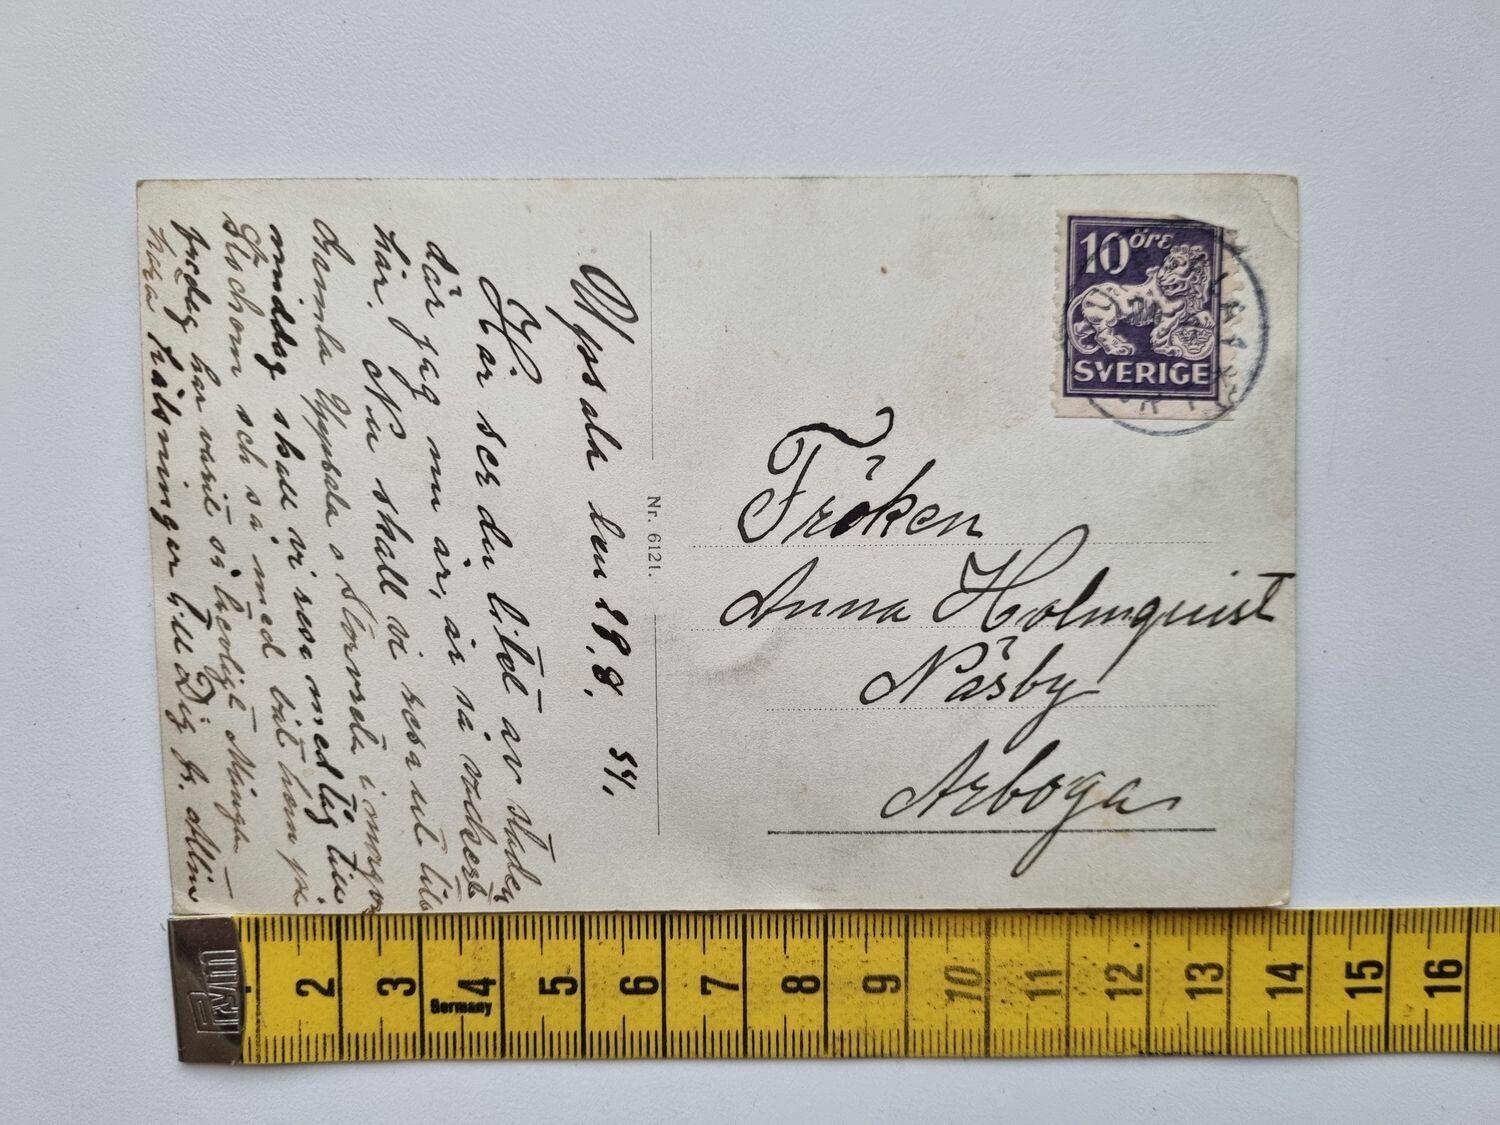 Uppsala den 28.8. 34.
Här ser du litet av staden
där jag nu är, är så vackert
här. Nu skall vi resa ut till
Gamla Uppsala o Storvreta i morgon
middag skall vi resa med tåg till
Stockholm och så med båt hem på
fredag har varit så trevligt
hära hälsningar till Dig fr.
Nr. 6121.
10 ÖRE
SVERIGE
Fröken
Anna Holmquist
Näsby
Arboga
PRYM
Germany
2 3 4 5 6 7 8 9 10 11 12 13 14 15 16